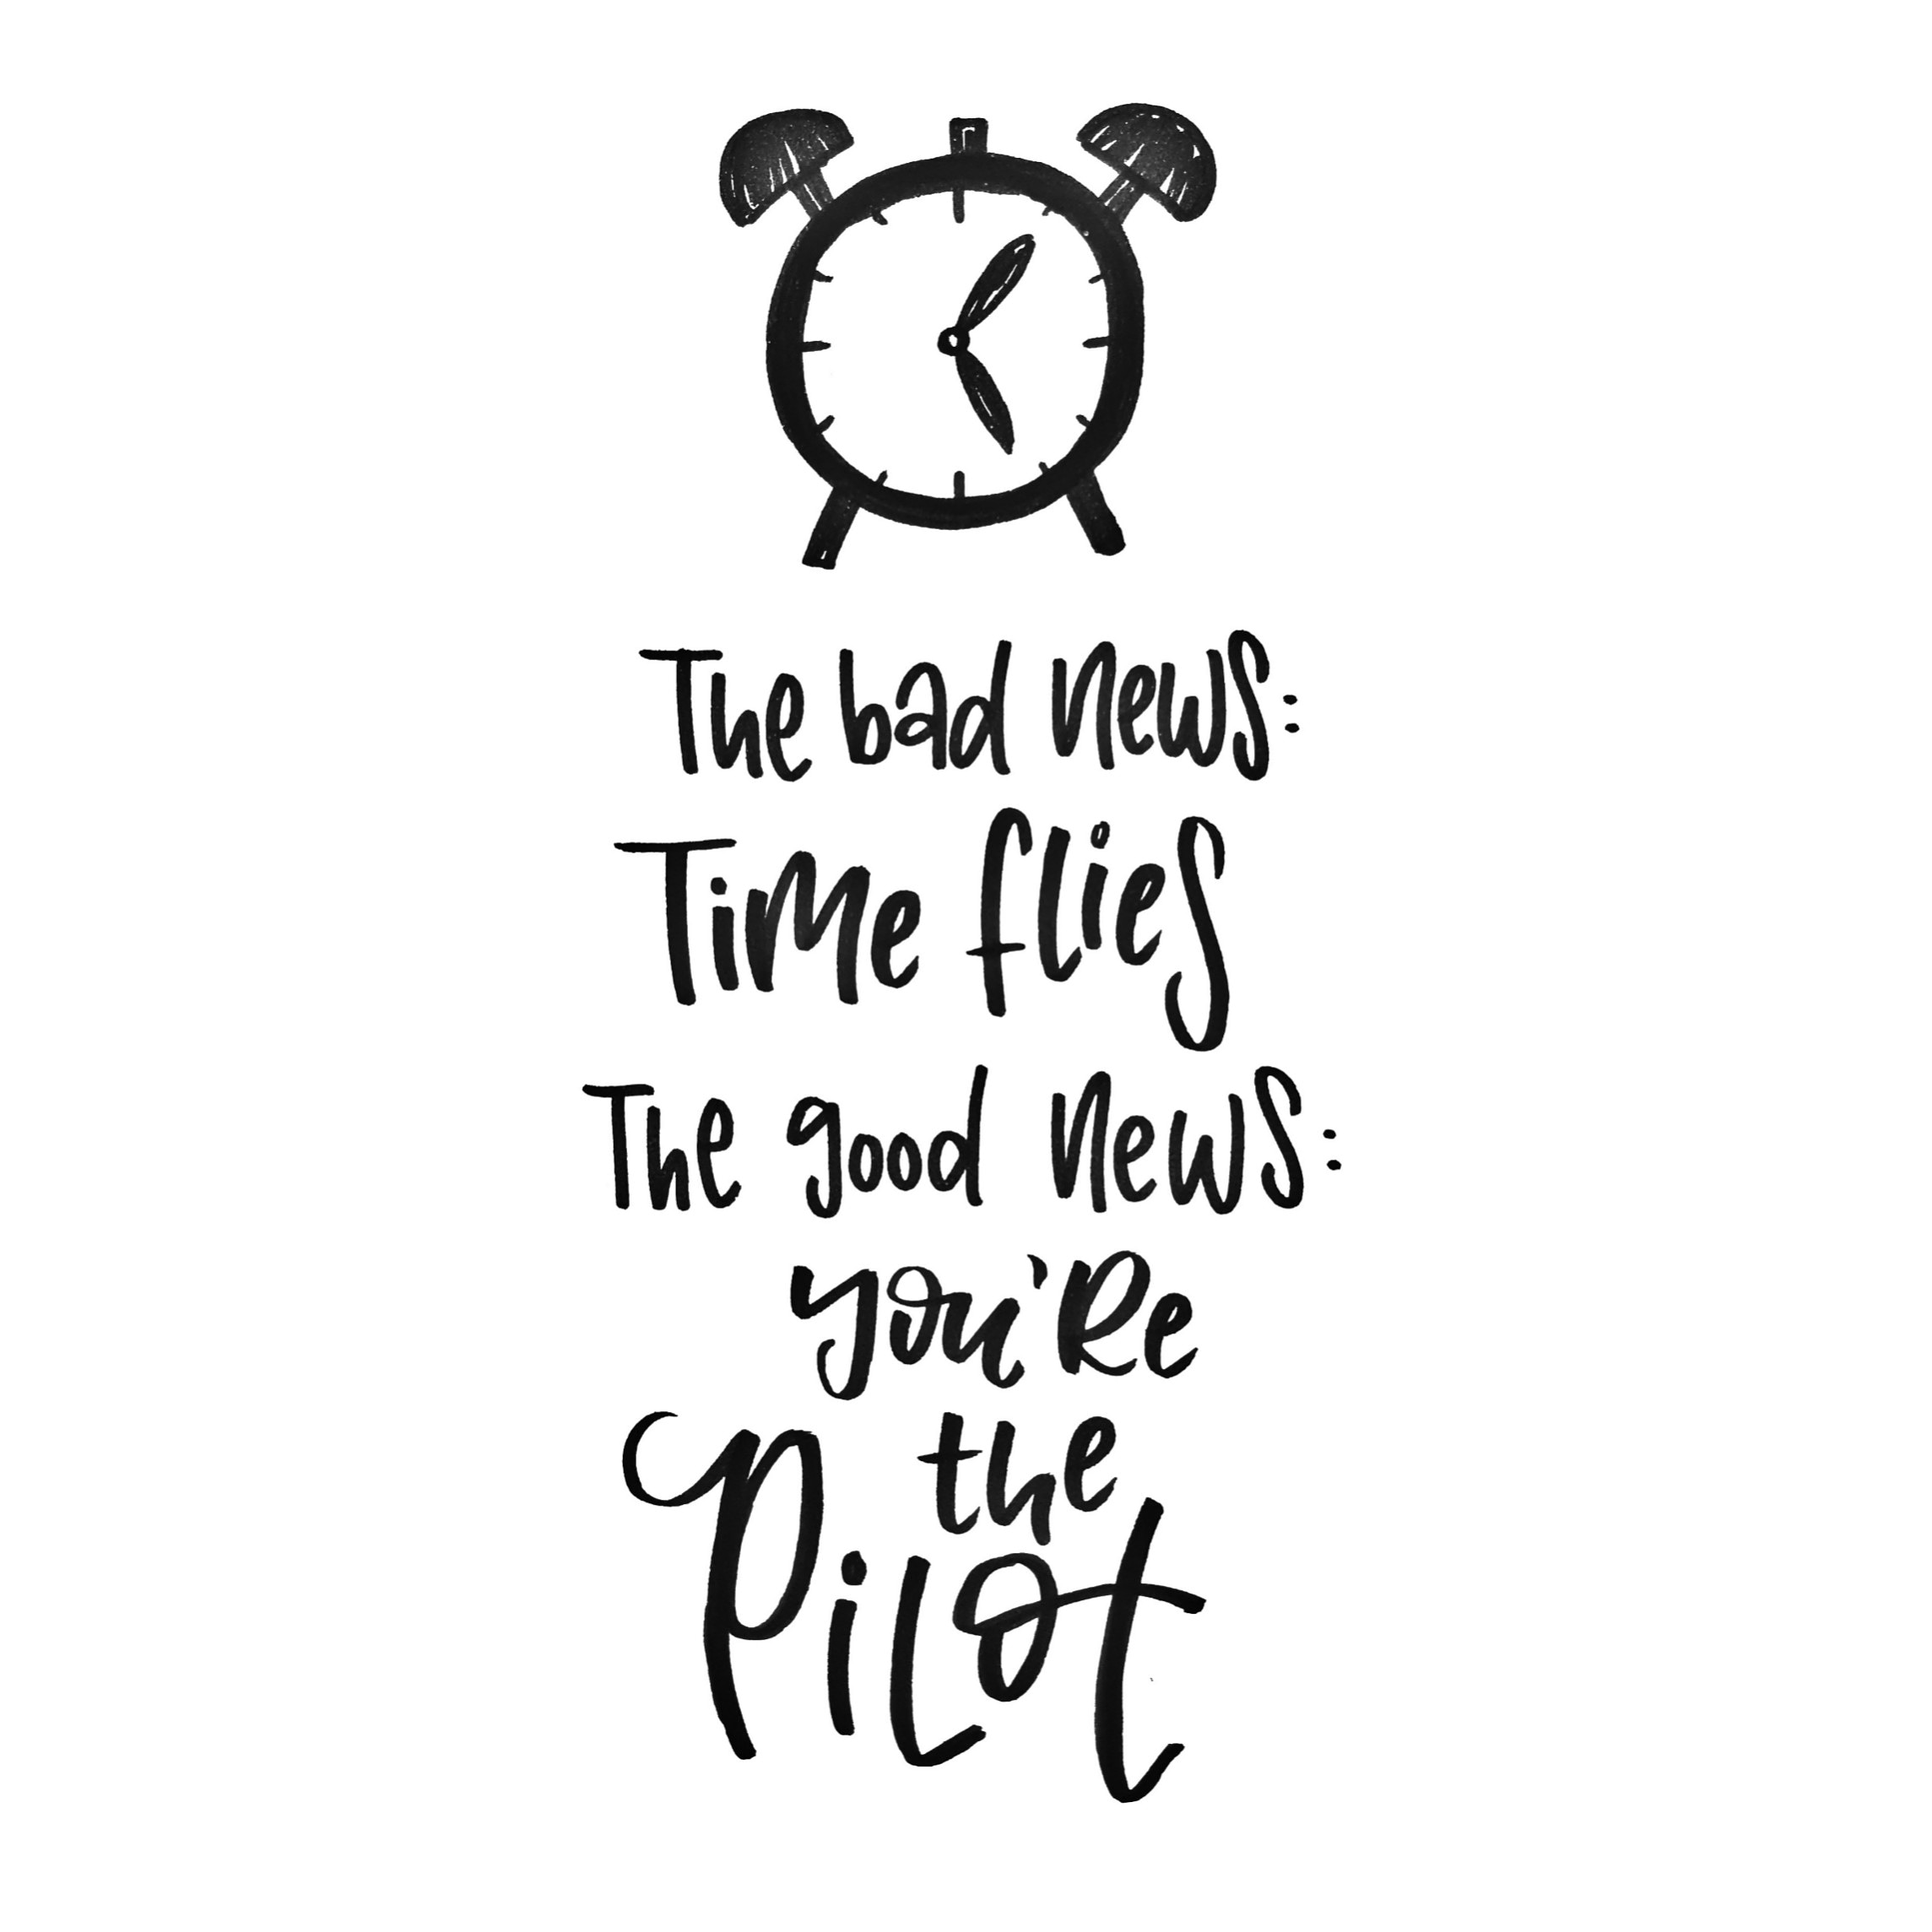 The bad news:
Time flies
The good news:
you're
the
Pilot